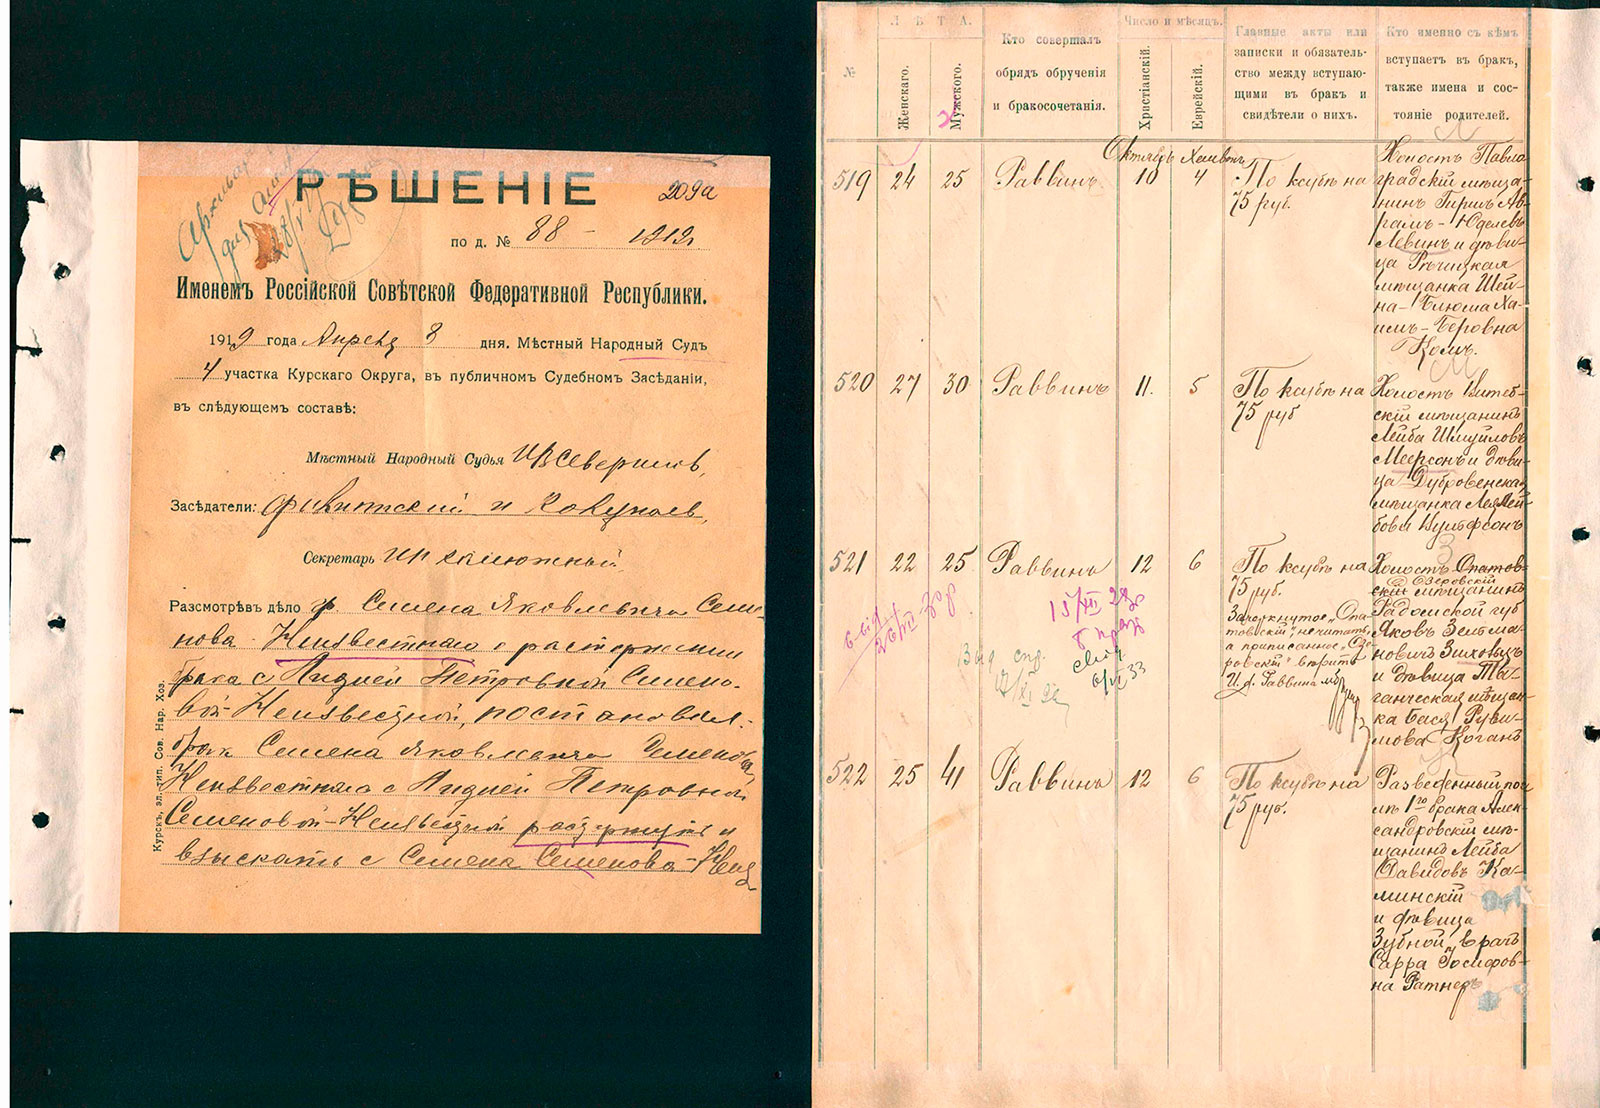 Архивар
для
РѢШЕНІЕ
209а
по д. № 88 - 1919.
Именемъ Россійской Совѣтской Федеративной Республики.
1919 года Апреля 8 дня. Мѣстный Народный Судъ
4 участка Курскаго Округа, въ публичномъ Судебномъ Засѣданіи,
въ слѣдующемъ составѣ:
Мѣстный Народный Судья
Засѣдатели: и
Секретарь
Разсмотрѣвъ дѣло гр. Семена Яковлевича Семе-
нова-Неизвестнаго о расторжении
брака с Лидией Петровной Семено-
вой-Неизвестной, постановил:
брак Семена Яковлевича Семенова
Неизвестнаго с Лидией Петровной
Семеновой-Неизвестной расторгнуть и
взыскать с Семена Семенова-Неиз
Курскъ, эл.-тип. Сов. Нар. Хоз.
№
ЛѢТА.
Женскаго.
Мужского.
Кто совершалъ
обрядъ обрученія
и бракосочетанія.
Число и мѣсяцъ.
Христіанскій.
Еврейскій.
Главные акты или
записки и обязатель-
ство между вступаю-
щими въ бракъ и
свидѣтели о нихъ.
Кто именно съ кѣмъ
вступаетъ въ бракъ,
также имена и сос-
тояніе родителей.
Октябрь
519 24 25 Раввинъ 10 4
По ксубѣ на
75 руб.
Холостъ Павло
градскій мѣща-
нинъ Гиршъ Ав-
рамъ-Юделевъ
Левинъ и дѣви-
ца Рѣчицкая
мѣщанка Шей-
на-Блюма Ха-
имъ-Беровна
520 27 30 Раввинъ 11. 5
По ксубѣ на
75 руб
Холостъ Витеб-
скій мѣщанинъ
Лейба Шмуйловъ
Меерсонъ и дѣви-
ца Дубровенская
мѣщанка Лея Лей-
бовя Вульфсонъ
521 22 25 Раввинъ 12 6
По ксубѣ на
75 руб.
Зачеркнутое „Опа-
товскій“, не читать,
а приписанное „Озе-
ровскій“ вѣрить
И. д. Раввина
Холостъ Опатов-
скій Озеровскій мѣщанинъ
Радомской губ
Яковъ Зельма-
новичъ
и дѣвица Та-
ганческая мѣщан-
ка Бася Руви-
мова Коганъ
15/VIII 28
Выд спр.
6/VI 33
522 25 41 Раввинъ 12 6
По ксубѣ на
75 руб.
Разведенный пос
лѣ 1го брака Алек-
сандровскій мѣ-
щанинъ Лейба
Давидовъ Ка-
минскій
и дѣвица
Зубной врачъ
Сарра Іосифов-
на Ратнеръ